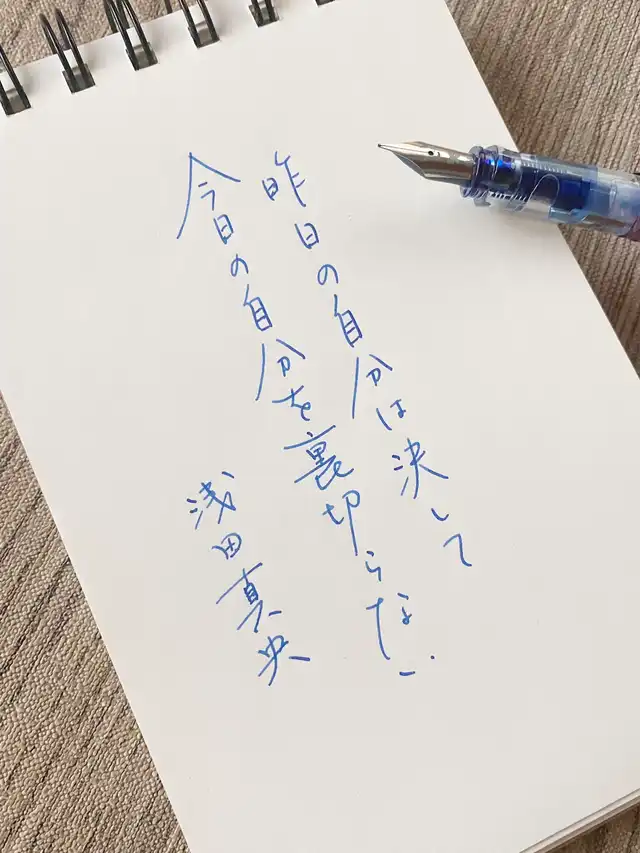 昨日の自分は決して
今日の自分を裏切らない
浅田真央